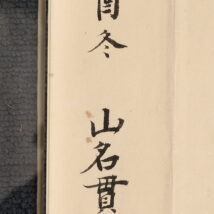 酉冬 山名貫